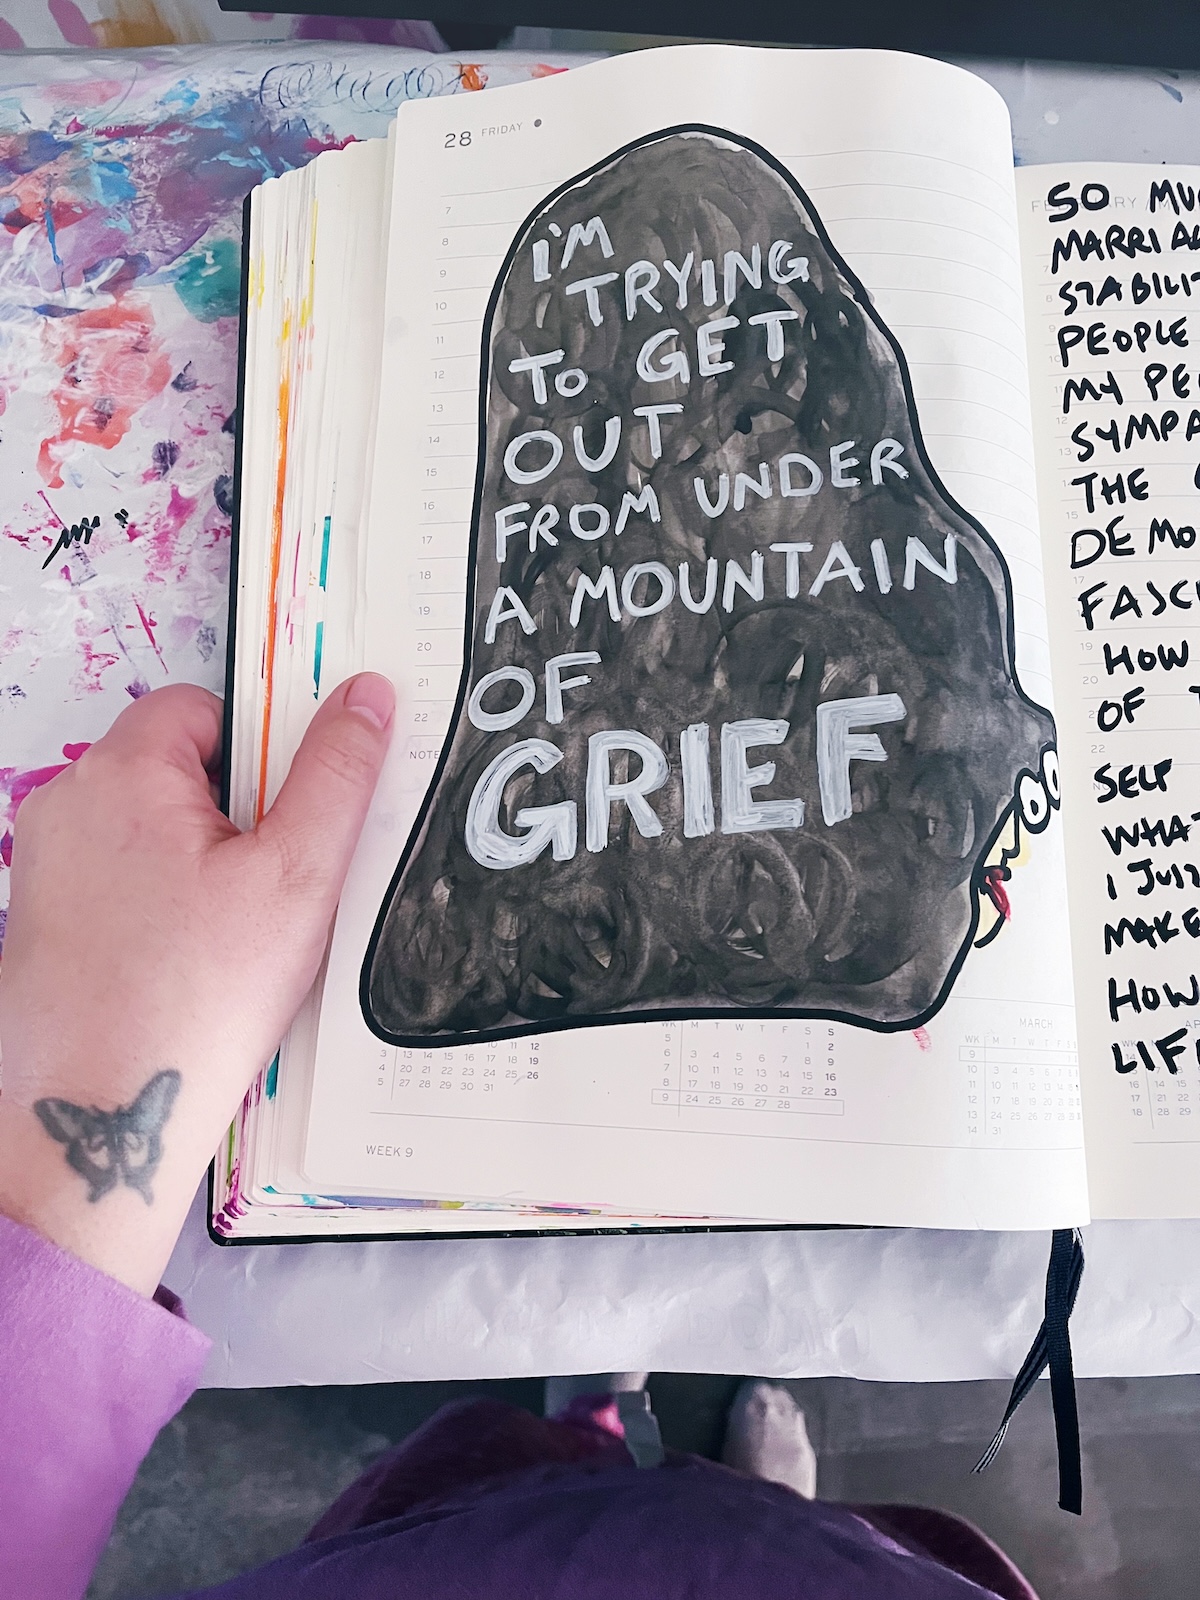 28 FRIDAY
7
8
9
10
11
12
13
14
15
16
17
18
19
20
21
22
NOTE
I'M
TRYING
TO GET
OUT
FROM UNDER
A MOUNTAIN
OF
GRIEF
10 11 12
3 13 14 15 16 17 18 19
4 20 21 22 23 24 25 26
5 27 28 29 30 31
WK M T W T F S S
5 1 2
6 3 4 5 6 7 8 9
7 10 11 12 13 14 15 16
8 17 18 19 20 21 22 23
9 24 25 26 27 28
MARCH
WK M T W T F S S
9
10 3 4 5 6 7
11 10 11 12 13 14
12 17 18 19 20 21
13 24 25 26 27 28
14 31
WEEK 9
SO
MARRIA
STABILIT
PEOPLE
MY PE
SYMPA
THE
DEMO
FASC
HOW
OF
SELF
WHAT
I JUST
MAKE
HOW
LIF